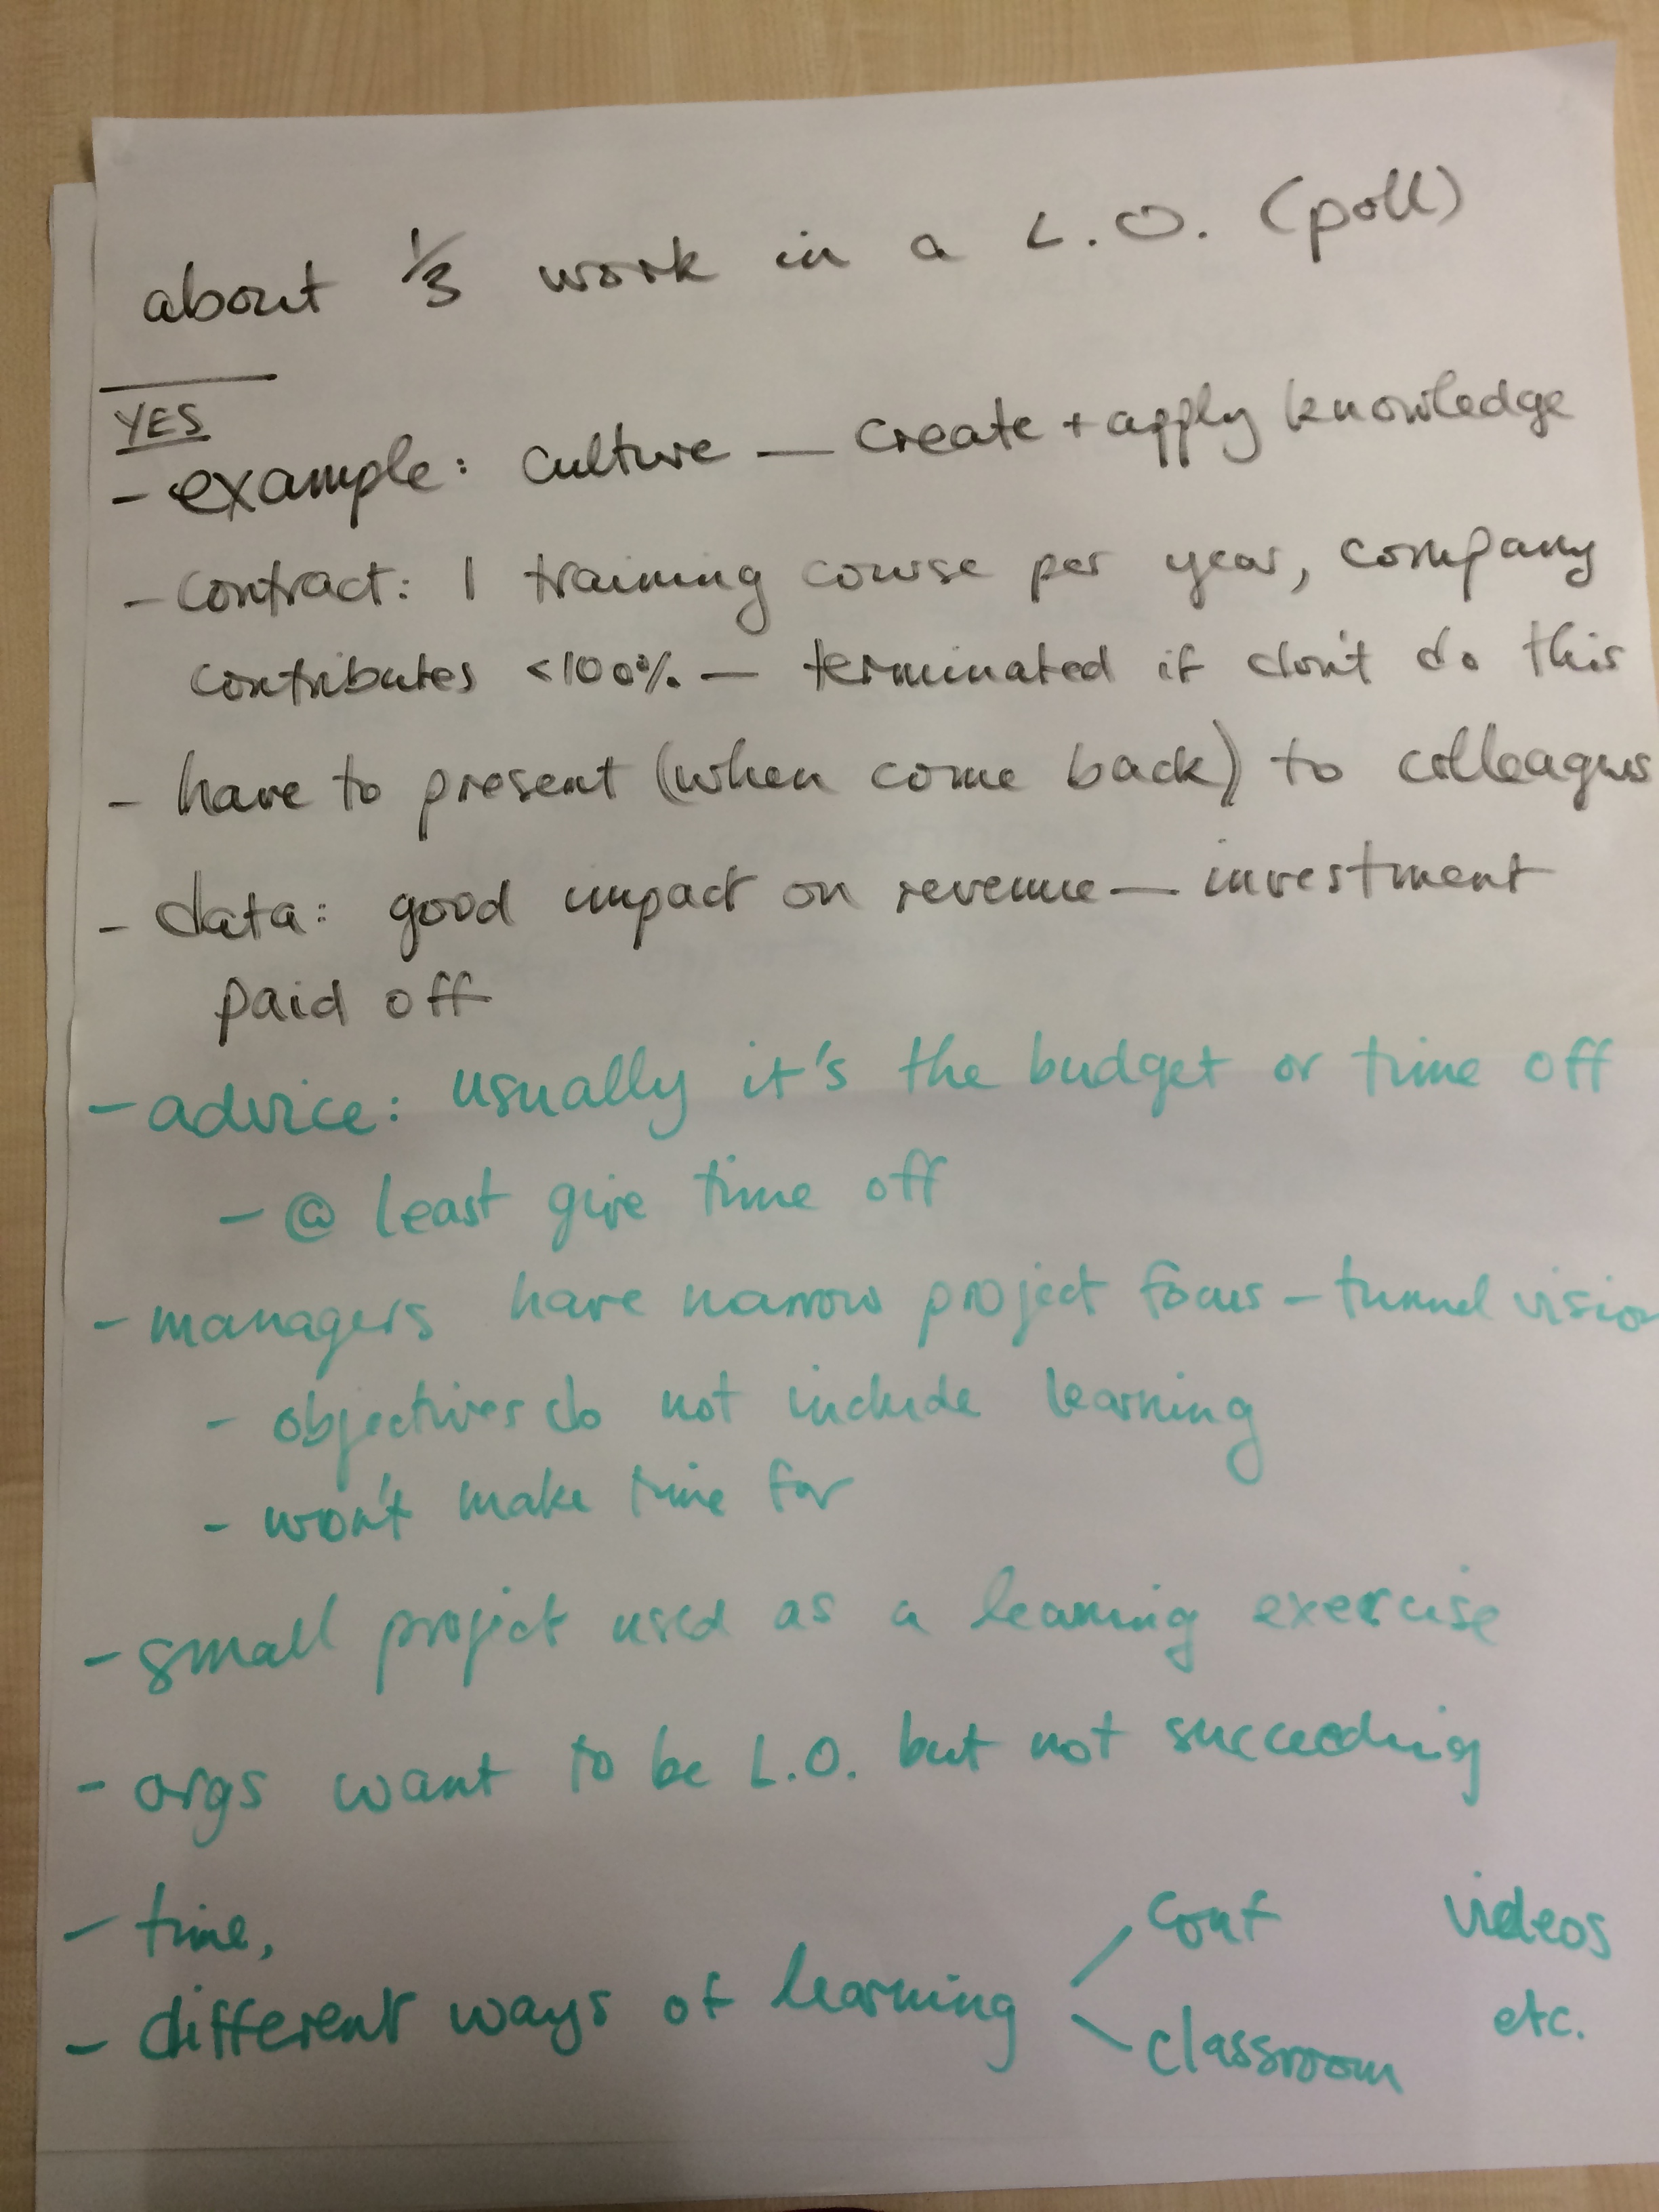 about 1/3 work in a L.O. (poll)
YES
- example: culture — create + apply knowledge
- contract: 1 training course per year, company
contributes <100% — terminated if don't do this
- have to present (when come back) to colleagues
- data: good impact on revenue — investment
paid off
- advice: usually it's the budget or time off
- @ least give time off
- managers have narrow project focus - tunnel vision
- objectives do not include learning
- won't make time for
- small project used as a learning exercise
- orgs want to be L.O. but not succeeding
- time,
- different ways of learning
conf videos
classroom etc.